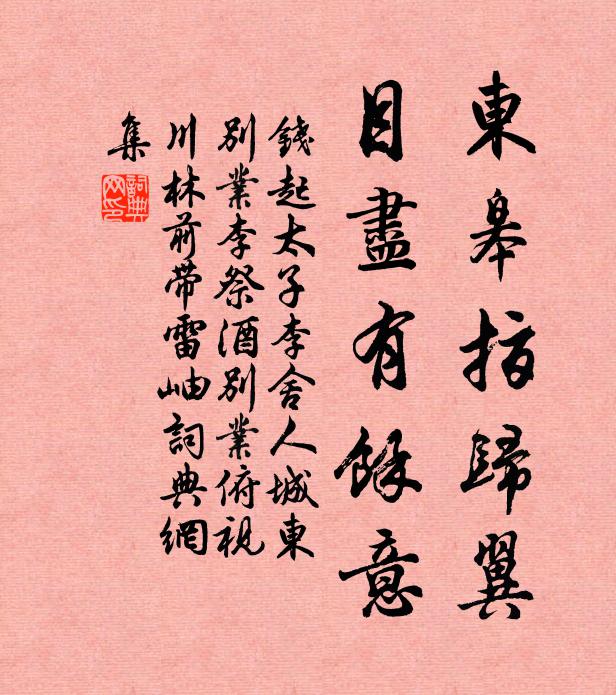 東皋指歸翼
目盡有餘意
錢起太子李舍人城東
別業李祭酒別業俯視
川林前带雷岫詞典網
集
詞典
网印